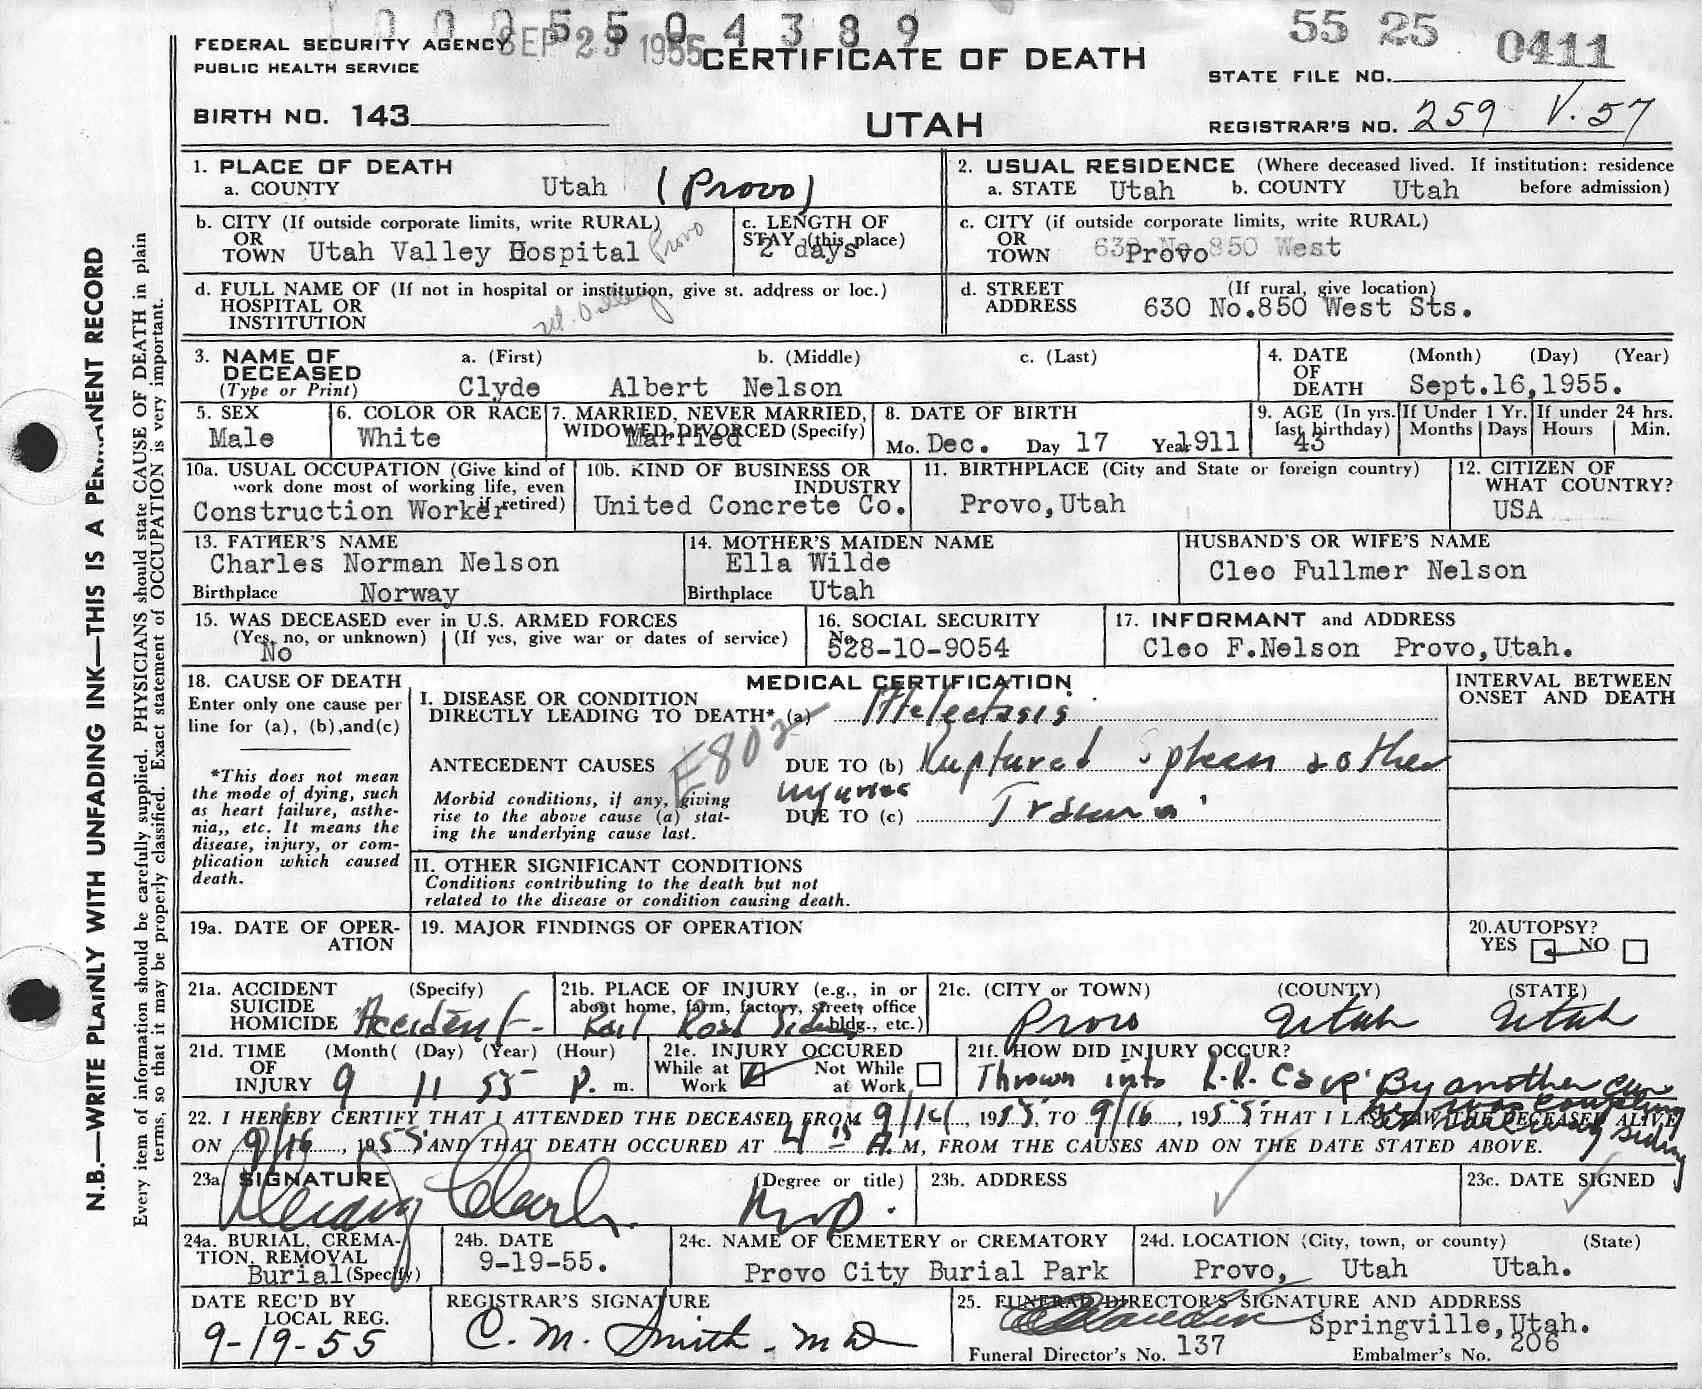 1 0 0 0 5 5 0 4 3 8 9
SEP 23 1955
55 25 0411
FEDERAL SECURITY AGENCY
PUBLIC HEALTH SERVICE
CERTIFICATE OF DEATH
STATE FILE NO.
BIRTH NO. 143
UTAH
REGISTRAR'S NO. 259 V.57
N.B.—WRITE PLAINLY WITH UNFADING INK—THIS IS A PERMANENT RECORD
Every item of information should be carefully supplied. PHYSICIANS should state CAUSE OF DEATH in plain
terms, so that it may be properly classified. Exact statement of OCCUPATION is very important.
1. PLACE OF DEATH
a. COUNTY Utah (Provo)
2. USUAL RESIDENCE (Where deceased lived. If institution: residence
a. STATE Utah b. COUNTY Utah before admission)
b. CITY (If outside corporate limits, write RURAL)
OR
TOWN Utah Valley Hospital Provo
c. LENGTH OF
STAY (this place)
2 days
c. CITY (if outside corporate limits, write RURAL)
OR
TOWN 630 No 850 West
Provo
d. FULL NAME OF (If not in hospital or institution, give st. address or loc.)
HOSPITAL OR
INSTITUTION Ut. Valley
d. STREET (If rural, give location)
ADDRESS 630 No.850 West Sts.
3. NAME OF a. (First) b. (Middle) c. (Last)
DECEASED
(Type or Print) Clyde Albert Nelson
4. DATE (Month) (Day) (Year)
OF
DEATH Sept.16,1955.
5. SEX
Male
6. COLOR OR RACE
White
7. MARRIED, NEVER MARRIED,
WIDOWED, DIVORCED (Specify)
Married
8. DATE OF BIRTH
Mo. Dec. Day 17 Year 1911
9. AGE (In yrs.
last birthday)
43
If Under 1 Yr.
Months Days
If under 24 hrs.
Hours Min.
10a. USUAL OCCUPATION (Give kind of
work done most of working life, even
if retired)
Construction Worker
10b. KIND OF BUSINESS OR
INDUSTRY
United Concrete Co.
11. BIRTHPLACE (City and State or foreign country)
Provo,Utah
12. CITIZEN OF
WHAT COUNTRY?
USA
13. FATHER'S NAME
Charles Norman Nelson
Birthplace Norway
14. MOTHER'S MAIDEN NAME
Ella Wilde
Birthplace Utah
HUSBAND'S OR WIFE'S NAME
Cleo Fullmer Nelson
15. WAS DECEASED ever in U.S. ARMED FORCES
(Yes, no, or unknown) (If yes, give war or dates of service)
No
16. SOCIAL SECURITY
No.
528-10-9054
17. INFORMANT and ADDRESS
Cleo F.Nelson Provo,Utah.
18. CAUSE OF DEATH
Enter only one cause per
line for (a), (b),and(c)
*This does not mean
the mode of dying, such
as heart failure, asthe-
nia,, etc. It means the
disease, injury, or com-
plication which caused
death.
MEDICAL CERTIFICATION
I. DISEASE OR CONDITION
DIRECTLY LEADING TO DEATH* (a) Atelectasis
E802
ANTECEDENT CAUSES DUE TO (b) Ruptured Spleen & other
injuries
Morbid conditions, if any, giving
rise to the above cause (a) stat-
ing the underlying cause last.
DUE TO (c) Trauma
II. OTHER SIGNIFICANT CONDITIONS
Conditions contributing to the death but not
related to the disease or condition causing death.
INTERVAL BETWEEN
ONSET AND DEATH
19a. DATE OF OPER-
ATION
19. MAJOR FINDINGS OF OPERATION
20.AUTOPSY?
YES NO
21a. ACCIDENT (Specify)
SUICIDE
HOMICIDE Accident
21b. PLACE OF INJURY (e.g., in or
about home, farm, factory, street, office
bldg., etc.)
Rail Road Siding
21c. (CITY or TOWN) (COUNTY) (STATE)
Provo Utah Utah
21d. TIME (Month( (Day) (Year) (Hour)
OF
INJURY 9 11 55 P. m.
21e. INJURY OCCURED
While at Not While
Work at Work
21f. HOW DID INJURY OCCUR?
Thrown into R.R. Car By another car
being siding
22. I HEREBY CERTIFY THAT I ATTENDED THE DECEASED FROM 9/14, 1955, TO 9/16, 1955, THAT I LAST SAW THE DECEASED ALIVE
ON 9/16, 1955 AND THAT DEATH OCCURED AT 4 15 A. M, FROM THE CAUSES AND ON THE DATE STATED ABOVE.
23a SIGNATURE (Degree or title)
Clark M.D.
23b. ADDRESS
23c. DATE SIGNED
24a. BURIAL, CREMA-
TION, REMOVAL
Burial (Specify)
24b. DATE
9-19-55.
24c. NAME OF CEMETERY or CREMATORY
Provo City Burial Park
24d. LOCATION (City, town, or county) (State)
Provo, Utah Utah.
DATE REC'D BY
LOCAL REG.
9-19-55
REGISTRAR'S SIGNATURE
C. M. Smith, MD
25. FUNERAL DIRECTOR'S SIGNATURE AND ADDRESS
Springville,Utah.
Funeral Director's No. 137 Embalmer's No. 206